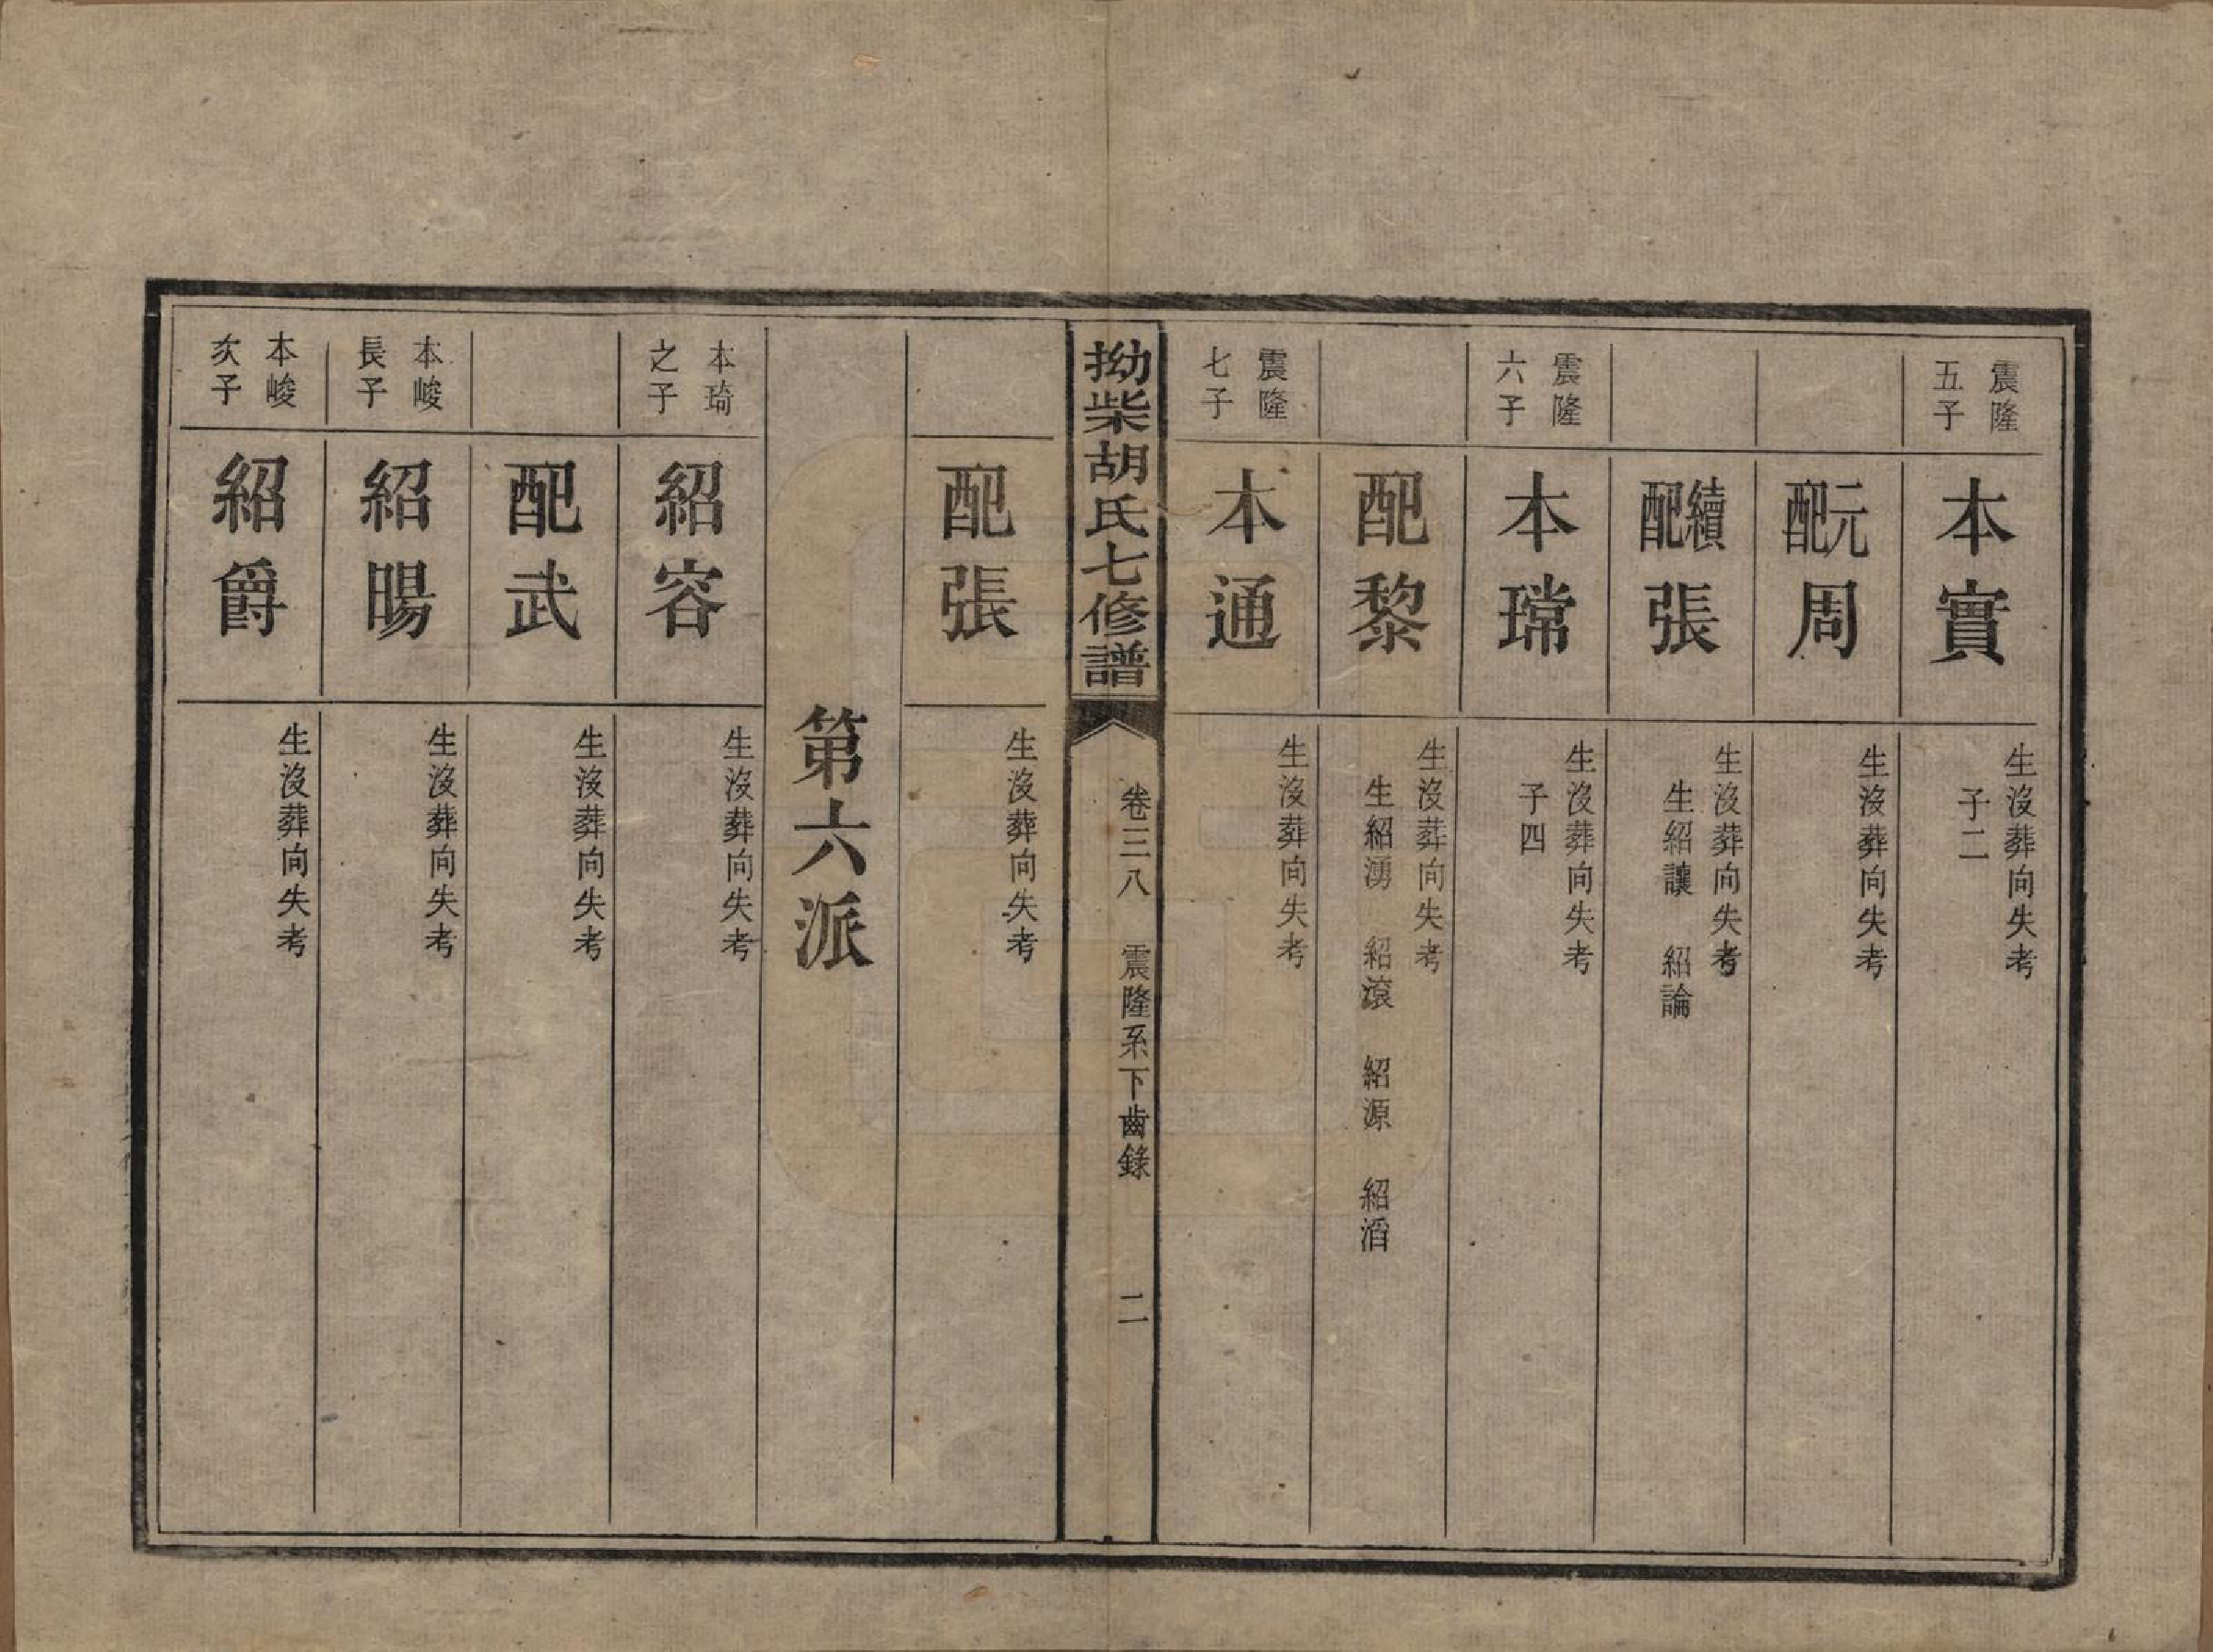 震隆
五子
本實
生沒葬向失考
子二
元配周
生沒葬向失考
續配張
生沒葬向失考
生紹讓　紹論
震隆
六子
本瑺
生沒葬向失考
子四
配黎
生沒葬向失考
生紹湧　紹滾　紹源　紹滔
震隆
七子
本通
生沒葬向失考
拗柴胡氏七修譜
卷三八　震隆系下齒錄　二
配張
生沒葬向失考
第六派
本琦
之子
紹容
生沒葬向失考
配武
生沒葬向失考
本峻
長子
紹暘
生沒葬向失考
本峻
次子
紹爵
生沒葬向失考